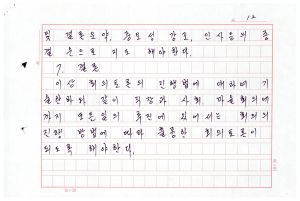 12
및 결론요약, 중요성 강조, 인사음의 종
결 순으로 지도 해야한다.
7. 결론
이상 회의토론의 진행법에 대하여 기
술한바와 같이 직장과 사회 마을회의에
까지 모든일의 추진에 있어서는 회의의
진행 방법에 따라 훌륭한 회의토론이
되도록 해야한다.